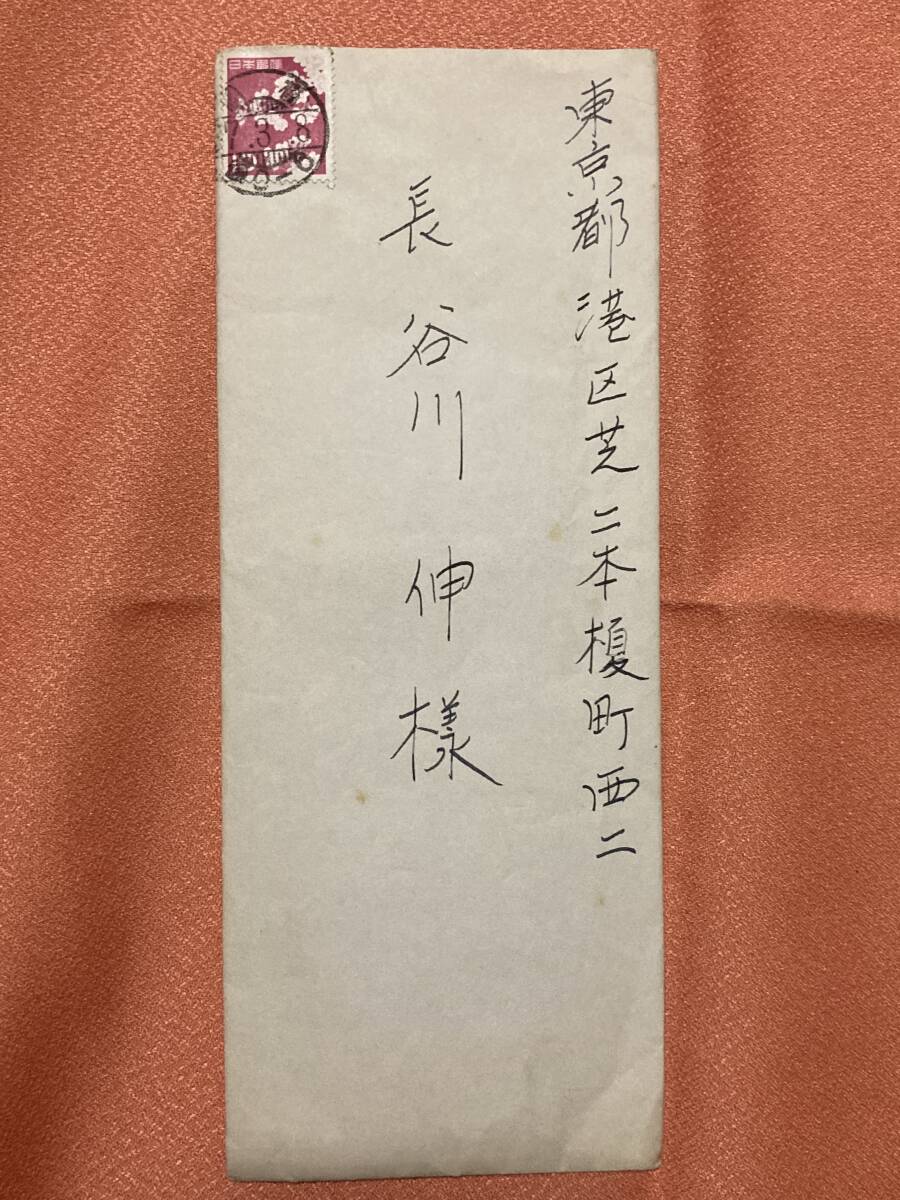 東京都港区芝二本榎町西二
長谷川 伸様
日本郵便
3.8